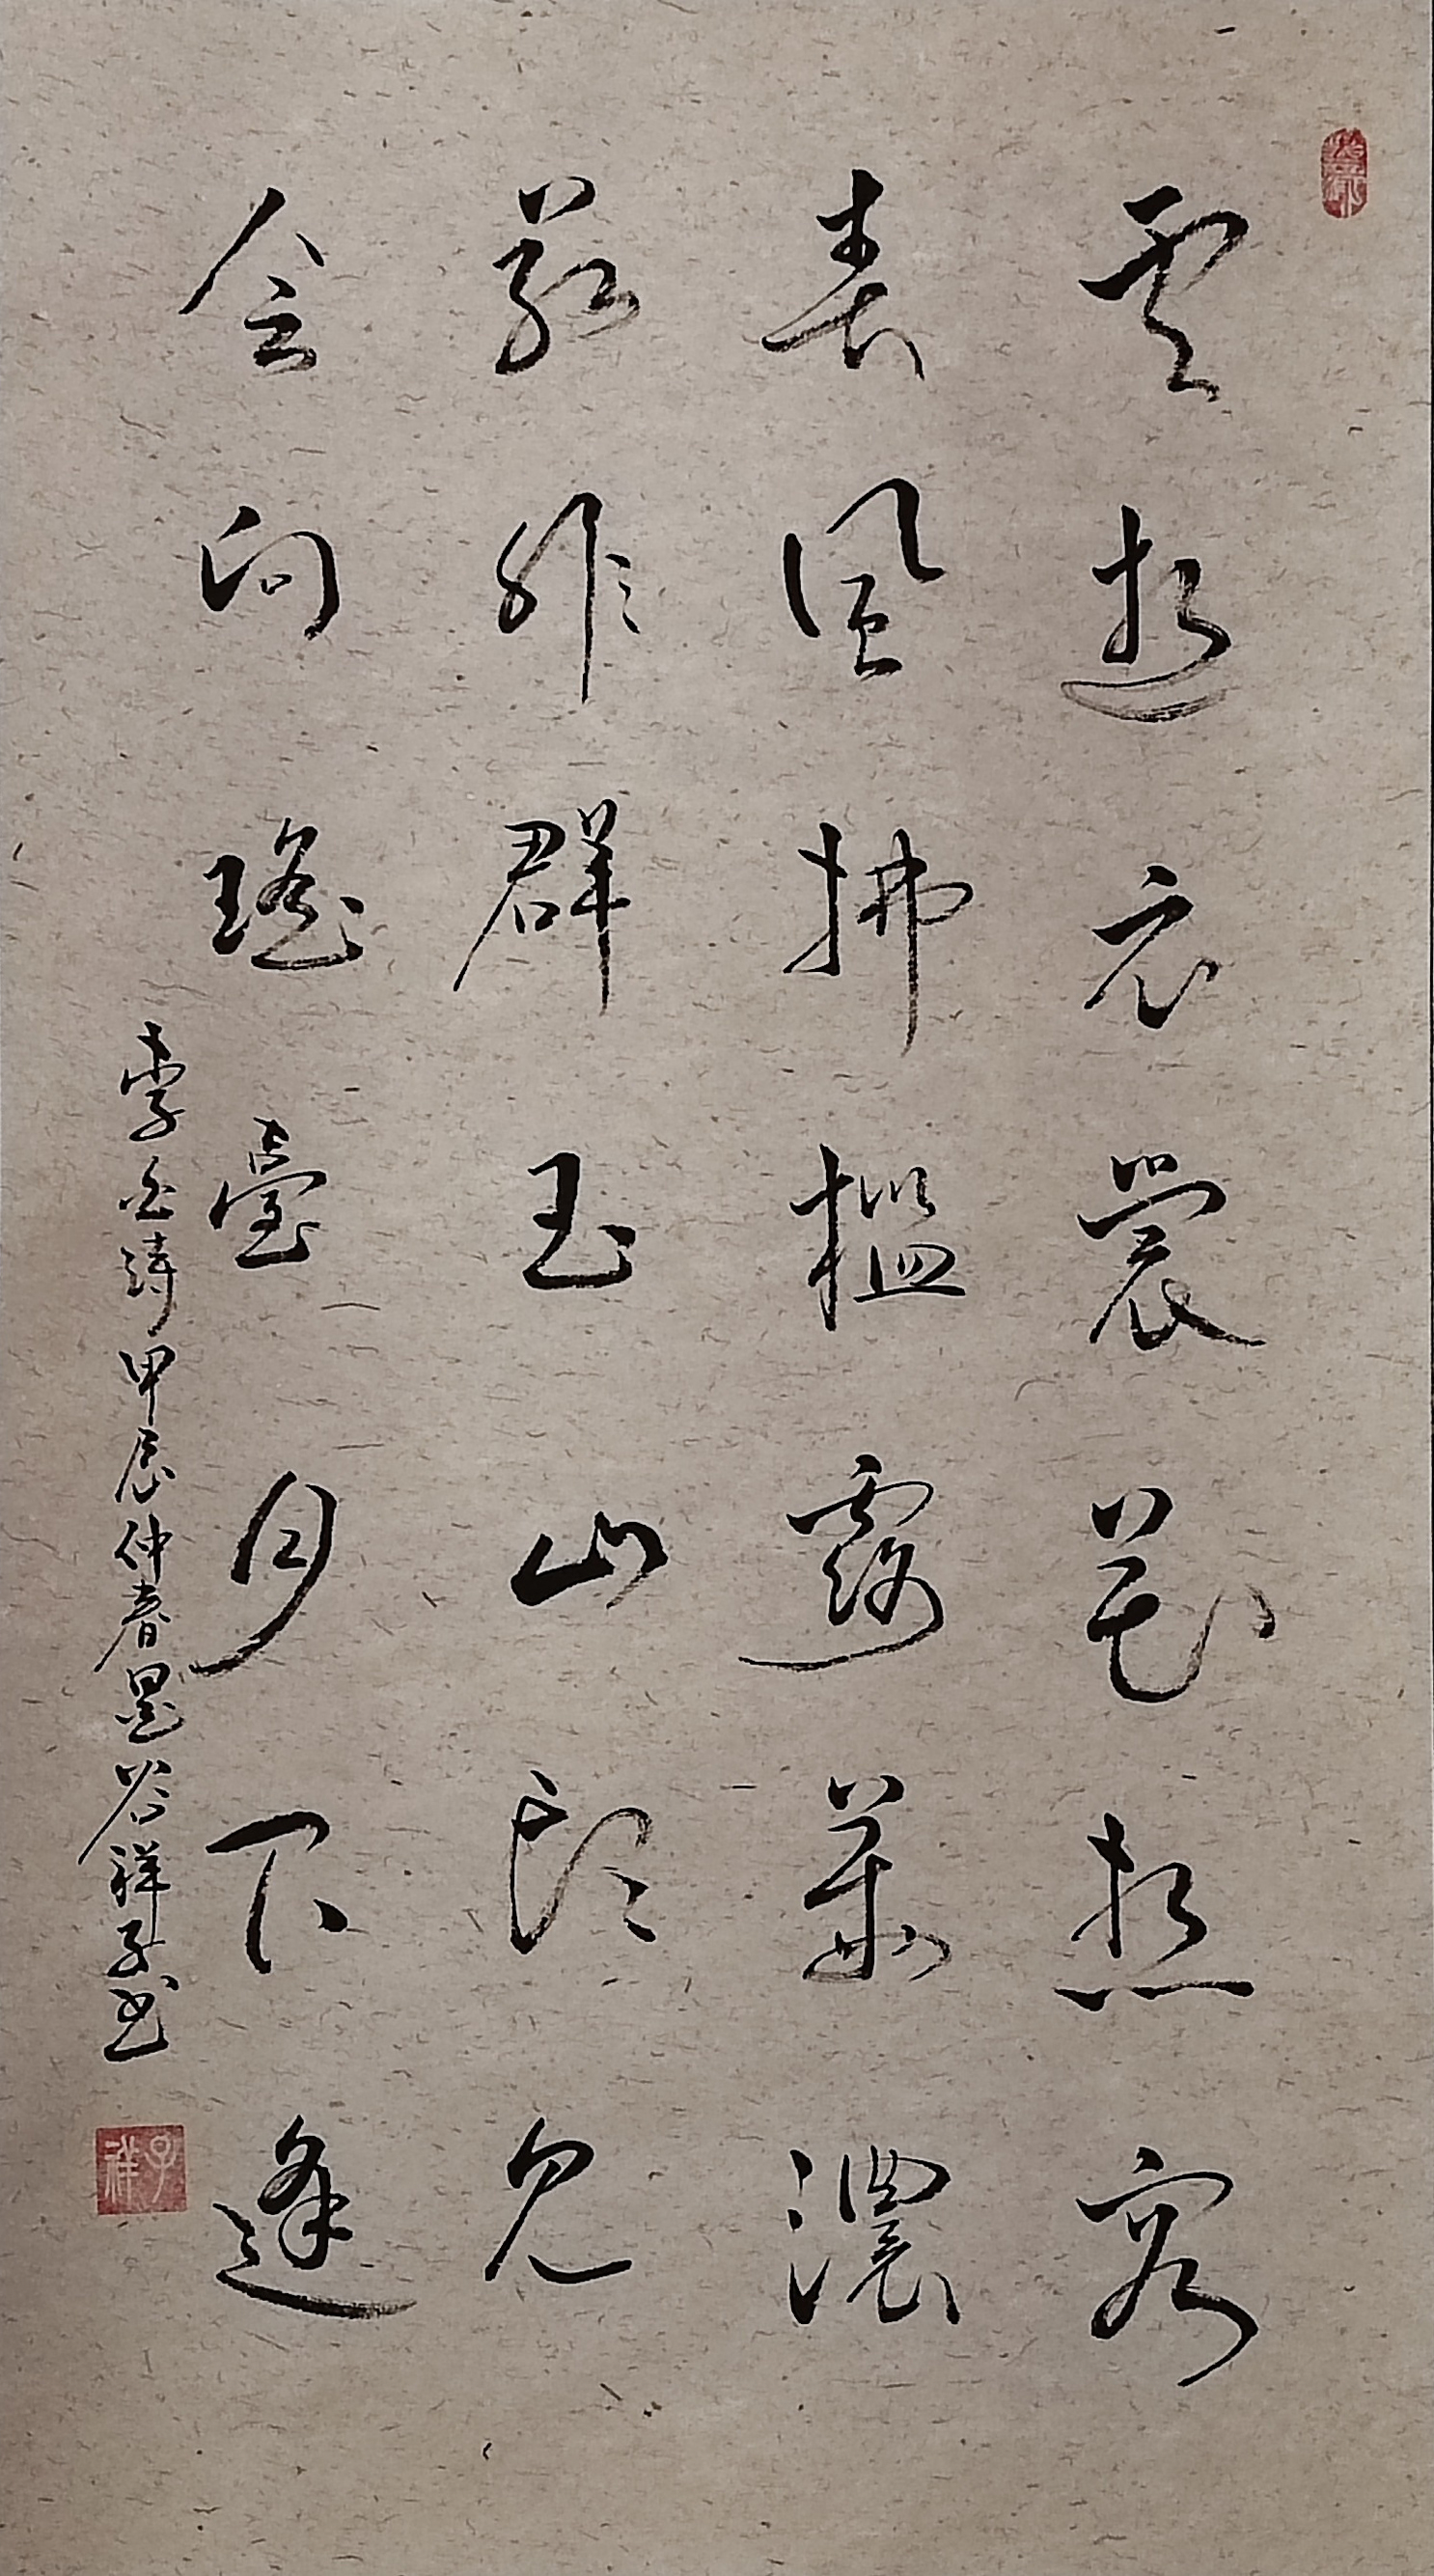 雲想衣裳花想容
春風拂檻露華濃
若非群玉山頭見
会向瑤臺月下逢
李白诗甲辰仲春墨谷祥子书
子祥